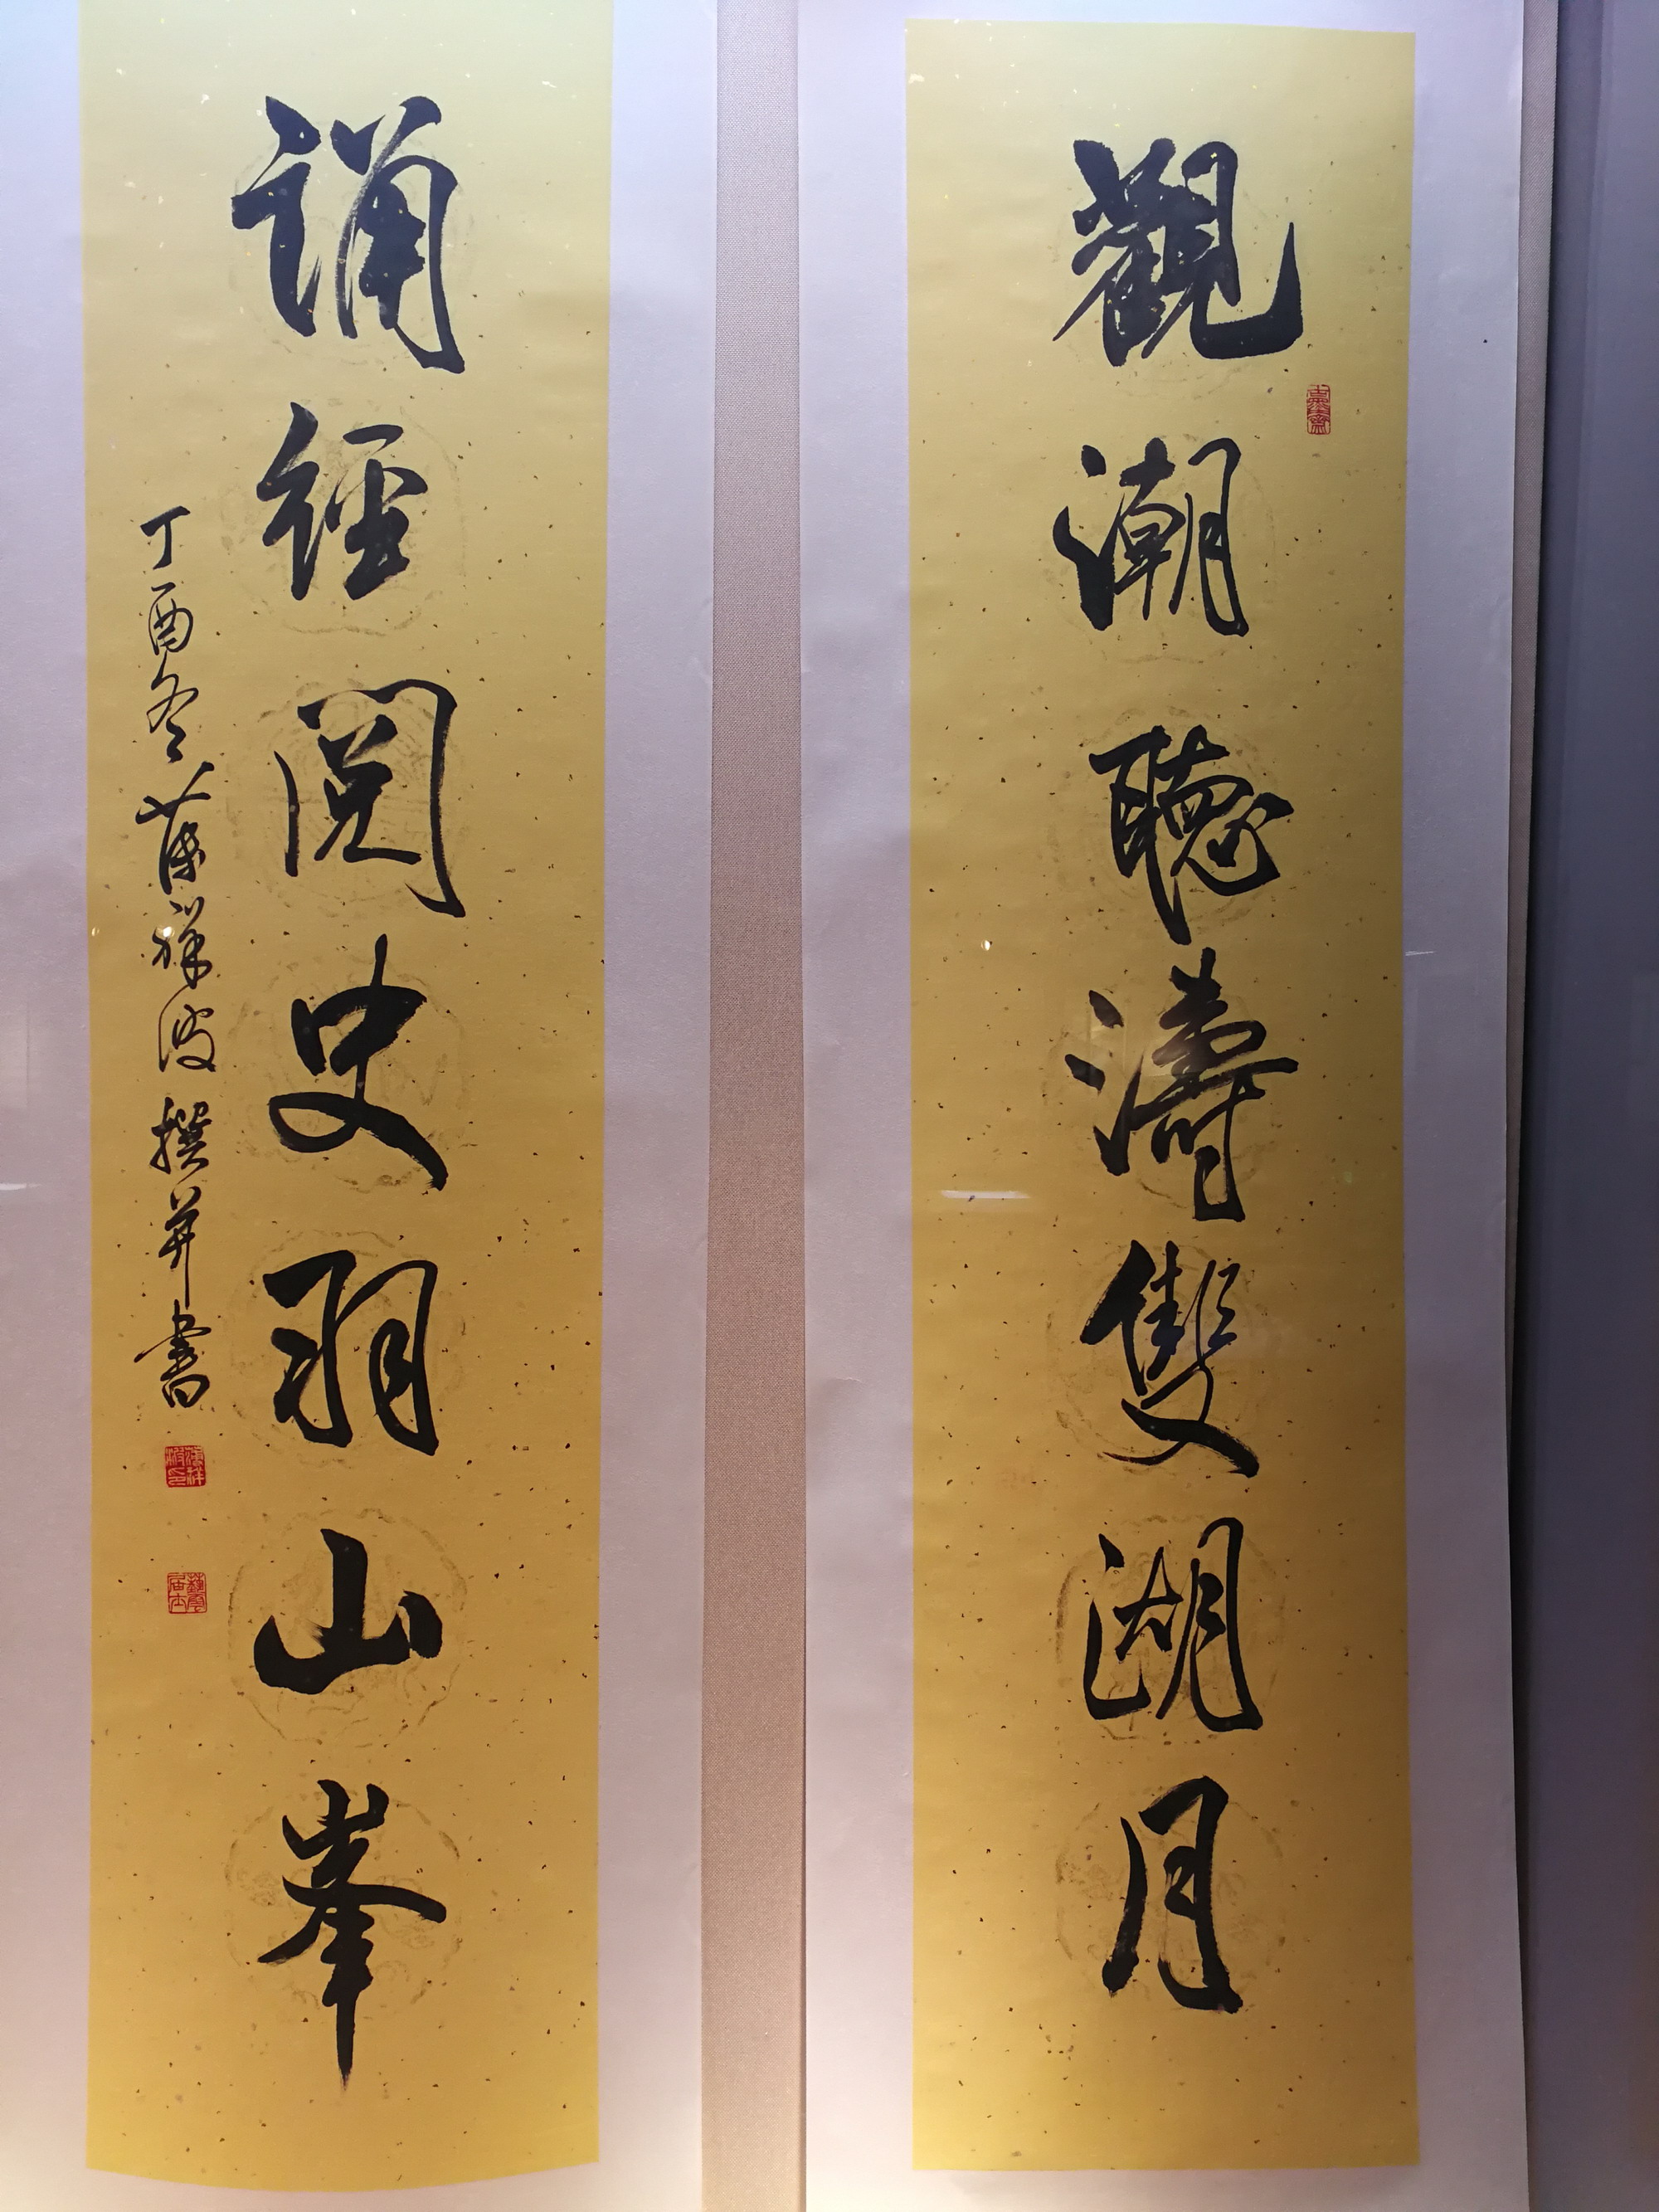 觀潮聽濤雙湖月
誦經閱史羽山峯
丁酉冬蒲祥波撰并書